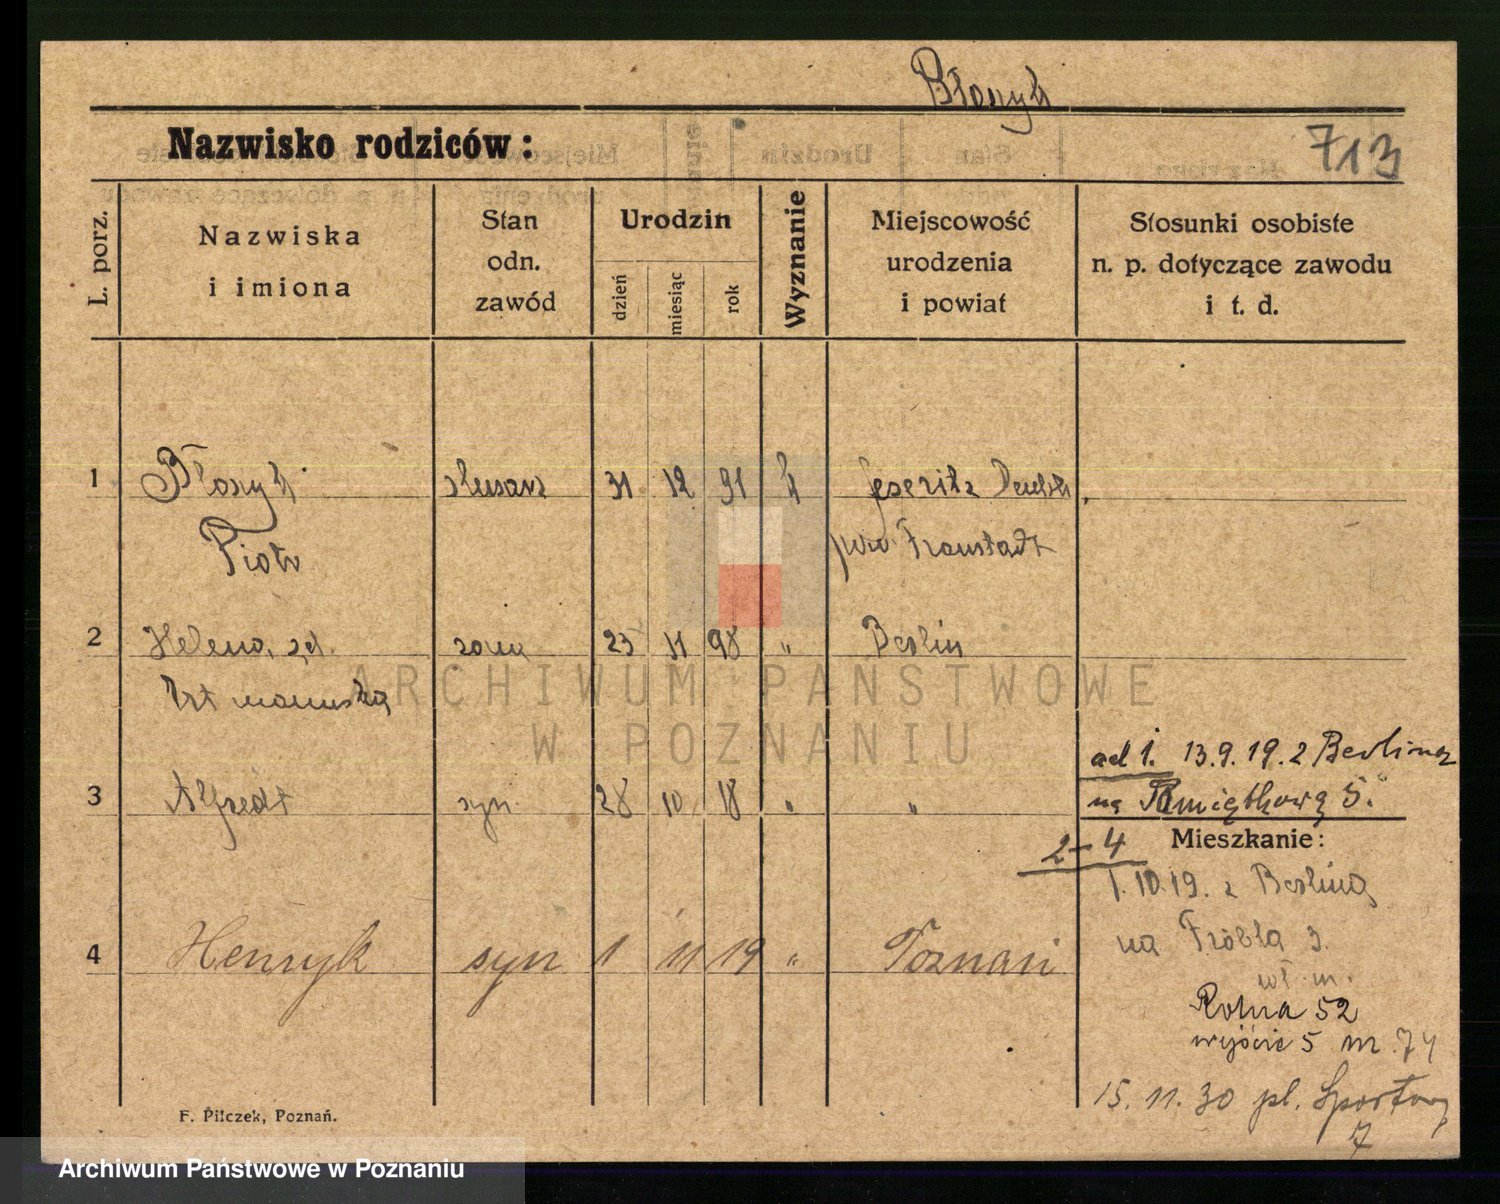 Błoszyk
Nazwisko rodziców:
713
L. porz.
Nazwiska
i imiona
Stan
odn.
zawód
Urodzin
dzień
miesiąc
rok
Wyznanie
Miejscowość
urodzenia
i powiat
Stosunki osobiste
n. p. dotyczące zawodu
i t. d.
1 ślusarz 31 12 91 Jeseritz
Piotr pow Fraustadt
2 Helena, zd. żona 23 11 98 " Berlin
ARCHIWUM PAŃSTWOWE
W POZNANIU
ad 1. 13.9.19. z Berlina
3 Alfredt syn 28 10 18 " "
na Pamiątkową 5.
2-4 Mieszkanie:
1.10.19. z Berlina
na Fröbla 3.
4 Henryk syn 1 11 19 " Poznań
wł. m.
Rolna 52
wejście 5 m 74
15. 11. 30 pl. Sportowy
7
F. Pilczek, Poznań.
Archiwum Państwowe w Poznaniu